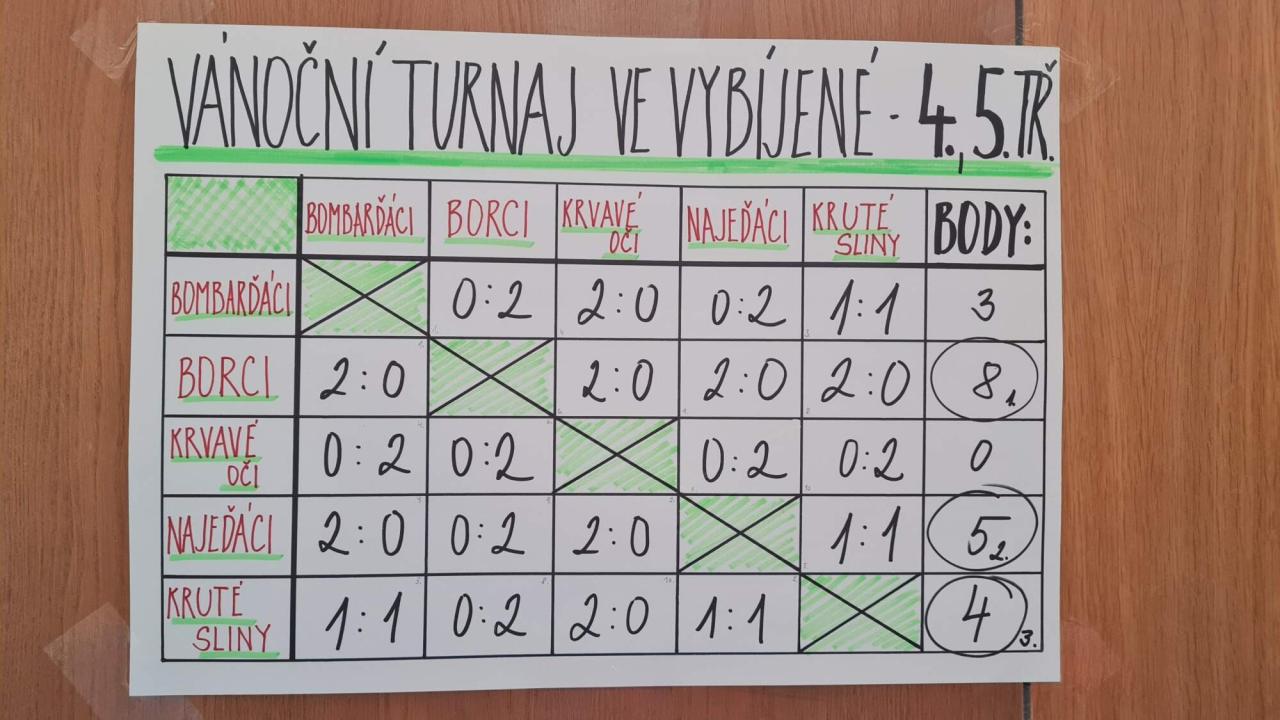 VÁNOČNÍ TURNAJ VE VYBÍJENÉ - 4., 5. TŘ.
BOMBARĎÁCI BORCI KRVAVÉ OČI NAJEĎÁCI KRUTÉ SLINY BODY:
BOMBARĎÁCI 0:2 2:0 0:2 1:1 3
BORCI 2:0 2:0 2:0 2:0 8 1.
KRVAVÉ OČI 0:2 0:2 0:2 0:2 0
NAJEĎÁCI 2:0 0:2 2:0 1:1 5 2.
KRUTÉ SLINY 1:1 0:2 2:0 1:1 4 3.